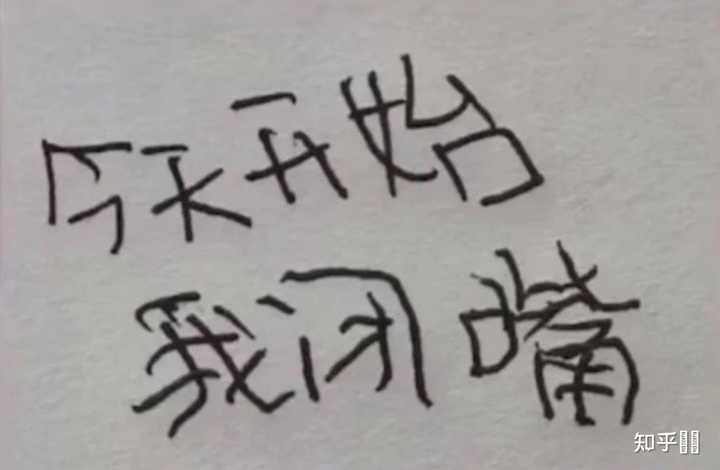 今天开始
我闭嘴
知乎